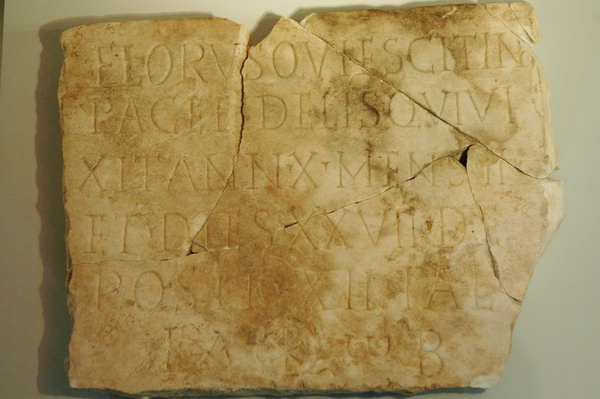 FLORVS QVIESCIT IN
PACE FIDELIS QVI VI
XIT ANN X · MENS II
ET DIES · XXVII D
POSITIO XII KAL